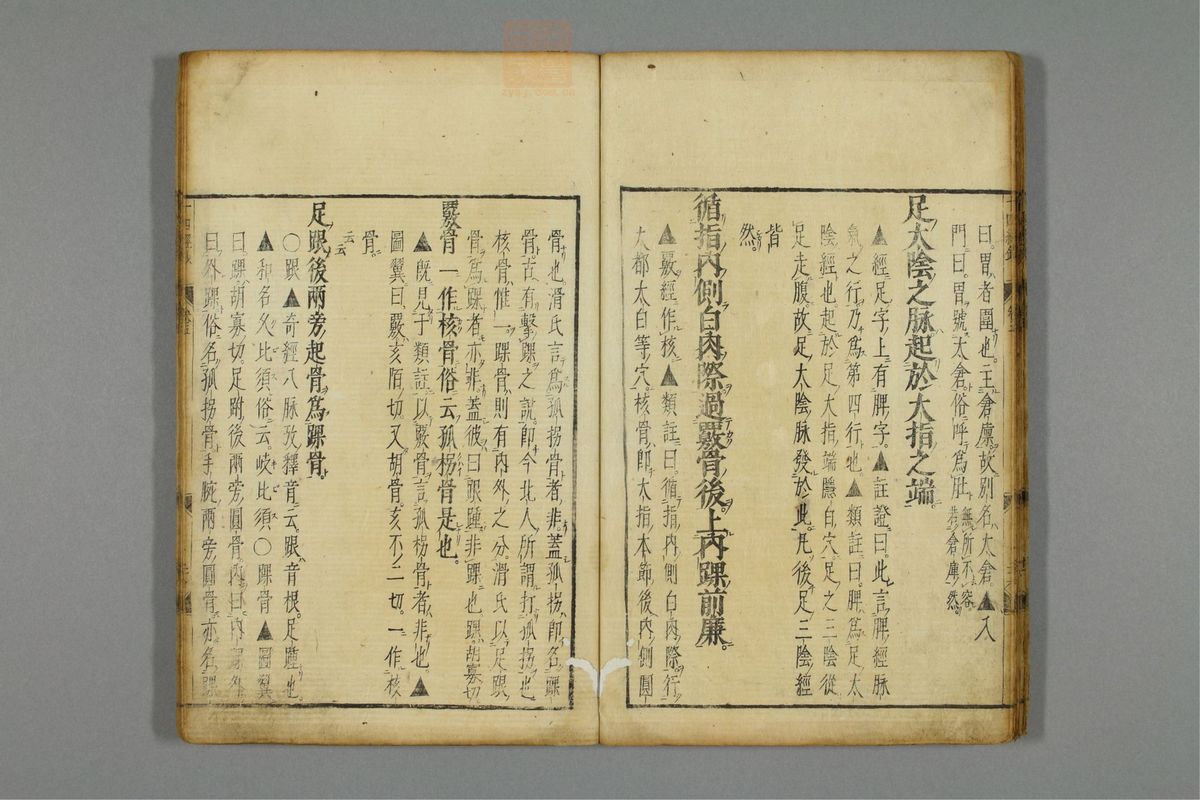 曰胃者圍也主倉廩故別名太倉▲入
門曰胃號太倉俗呼爲肚無所不容若倉庫然
足太陰之脉起於大指之端
▲經足字上有脾字▲註證曰此言脾經脉
氣之行乃爲第四行也▲類註曰脾爲足太
陰經也起於足大指端隱白穴足之三陰從
足走腹故足太陰脉發於此凡後足三陰經
皆
然
循指內側白肉際過覈骨後上內踝前廉
▲覈經作核▲類註曰循指內側白肉際行
大都太白等穴核骨即大指本節後內側圓
骨也滑氏言爲孤拐骨者非蓋孤拐即名踝
骨古有擊踝之說即今北人所謂打孤拐也
核骨惟一踝骨則有內外之分滑氏以足跟
骨爲踝者亦非蓋彼曰跟踵非踝也踝胡寡切
覈骨一作核骨俗云孤拐骨是也
▲既見于類註以覈骨言孤拐骨者非也▲
圖翼曰覈亥陌切又胡骨亥不二切一作核
骨
云云
足跟後兩旁起骨爲踝骨
○跟▲奇經八脉攷釋音云跟音根足踵也
▲和名久比須俗云岐比須○踝骨▲圖翼
曰踝胡寡切足跗後兩旁圓骨內曰內踝外
曰外踝俗名孤拐骨手腕兩旁圓骨亦名踝